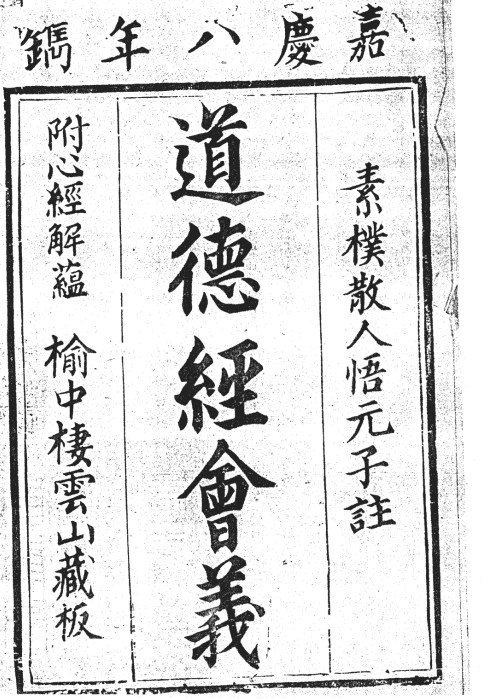 嘉慶八年鐫
素樸散人悟元子註
道德經會義
附心經解蘊 榆中棲雲山藏板